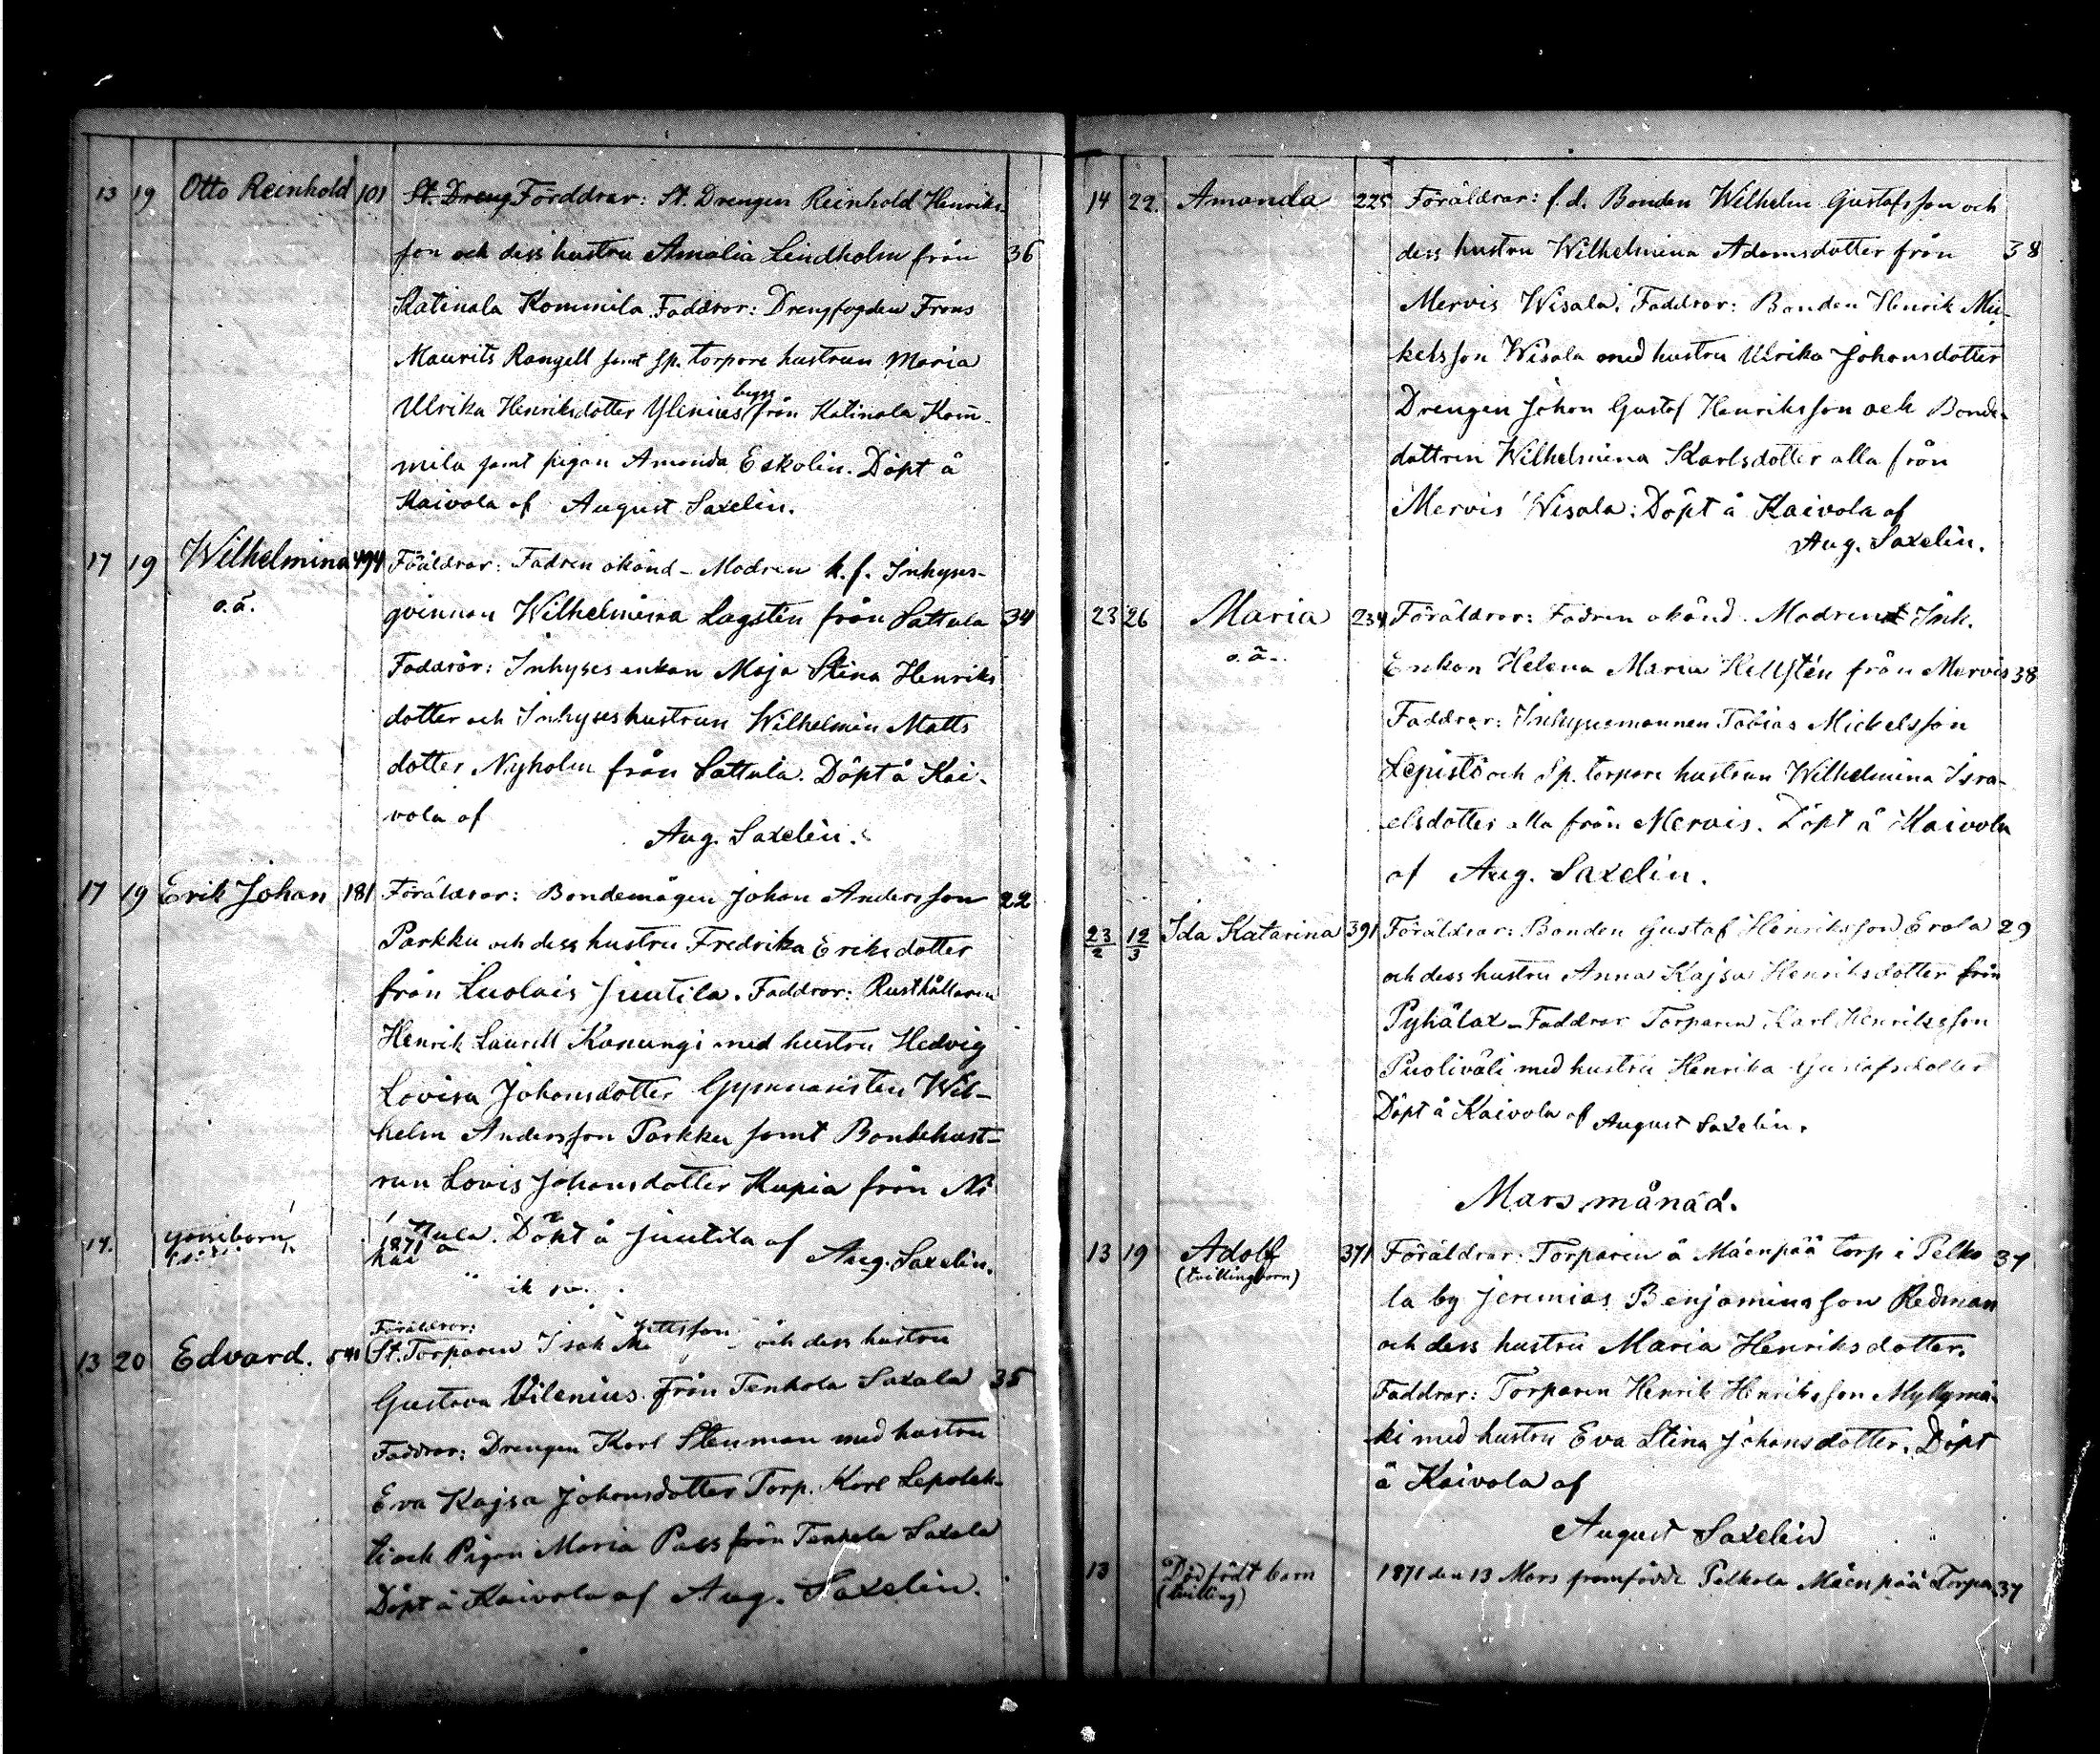 13 19 Otto Reinhold 101 St. Dreng Förddrar: St. Drengen Reinhold Henriks-
son och dess hustru Amalia Lindholm från 36
Katinala Kommila. Faddrar: Drengfogden Frans
Maurits Rangell samt Sp. torpare hustrun Maria
Ulrika Henriksdotter Ylenius bygg från Katinala Kom̄-
mila samt pigan Amanda Eskolin. Döpt å
Kaivola af August Saxelin.
17 19 Wilhelmina 494 Föäldrar: Fadren okänd - Modren k.f. Inhyses-
o.ä. qvinnan Wilhelmina Lagstén från Sattula 34
Faddrar: Inhyses enkan Maja Stina Henriks
dotter och Inhyseshustrun Wilhelmin Matts
dotter Nyholm från Sattula. Döpt å Kai-
vola af
Aug. Saxelin.
17 19 Erik Johan 181 Föräldrar: Bondemågen Johan Andersson 22
Parkku och dess hustru Fredrika Eriksdotter
från Luolais Juutila. Faddrar: Rusthållaren
Henrik Laurell Kanungi med hustru Hedvig
Lovisa Johansdotter Gymnasisten Wil-
helm Andersson Parkku samt Bondehust-
run Lovis Johansdotter Kupia från Ni
ttula. Döpt å Juutila af
Aug. Saxelin.
17. 1871
Föräldrar:
13 20 Edvard. 541 St. Torparen Isak och dess hustru
Gustava Vilenius från Tenhola Saxala 35
Faddrar: Drengen Karl Stenman med hustru
Eva Kajsa Johansdotter Torp. Karl Lepoleh-
ti och Pigan Maria Pass från Tenhola Saxala
Döpt å Kaivola af Aug. Saxelin.
14 22. Amanda 225 Föräldrar: f.d. Bonden Wilhelm Gustafsson och
dess hustru Wilhelmina Adamsdotter från 38
Mervis Wisala. Faddrar: Bonden Henrik Mi-
kelsson Wisala med hustru Ulrika Johansdotter
Drengen Johan Gustaf Henriksson och Bonde-
dottren Wilhelmina Karlsdotter alla från
Mervis Wisala. Döpt å Kaivola af
Aug. Saxelin.
23 26 Maria 234 Föräldrar: Fadren okänd. Modren Inh.
o.ä. Enkan Helena Maria Hellstén från Mervis 38
Faddrar: Inhysesmannen Tobias Mickelsson
Lepistö och Sp. torpare hustrun Wilhelmina Isra-
elsdotter alla från Mervis. Döpt å Kaivola
af Aug. Saxelin.
23/2 12/3 Ida Katarina 391 Föräldrar: Bonden Gustaf Henriksson Erola 29
och dess hustru Anna Kajsa Henriksdotter från
Pyhälax - Faddrar Torparen Karl Henriksson
Puoliväli med hustru Henrika Gustafsdotter
Döpt å Kaivola af August Saxelin.
Mars månad.
13 19 Adolf 371 Föräldrar: Torparen å Mäenpää torp i Pelko 37
(tvillingbarn)
la by Jeremias Benjaminsson Redman
och dess hustru Maria Henriksdotter.
Faddrar: Torparen Henrik Henriksson Myllymä-
ki med hustru Eva Stina Johansdotter. Döpt
å Kaivola af
August Saxelin
13 Dödfödt barn 1871 den 13 Mars framfödde Pelkola Mäenpää Torpa 37
(tvilling)